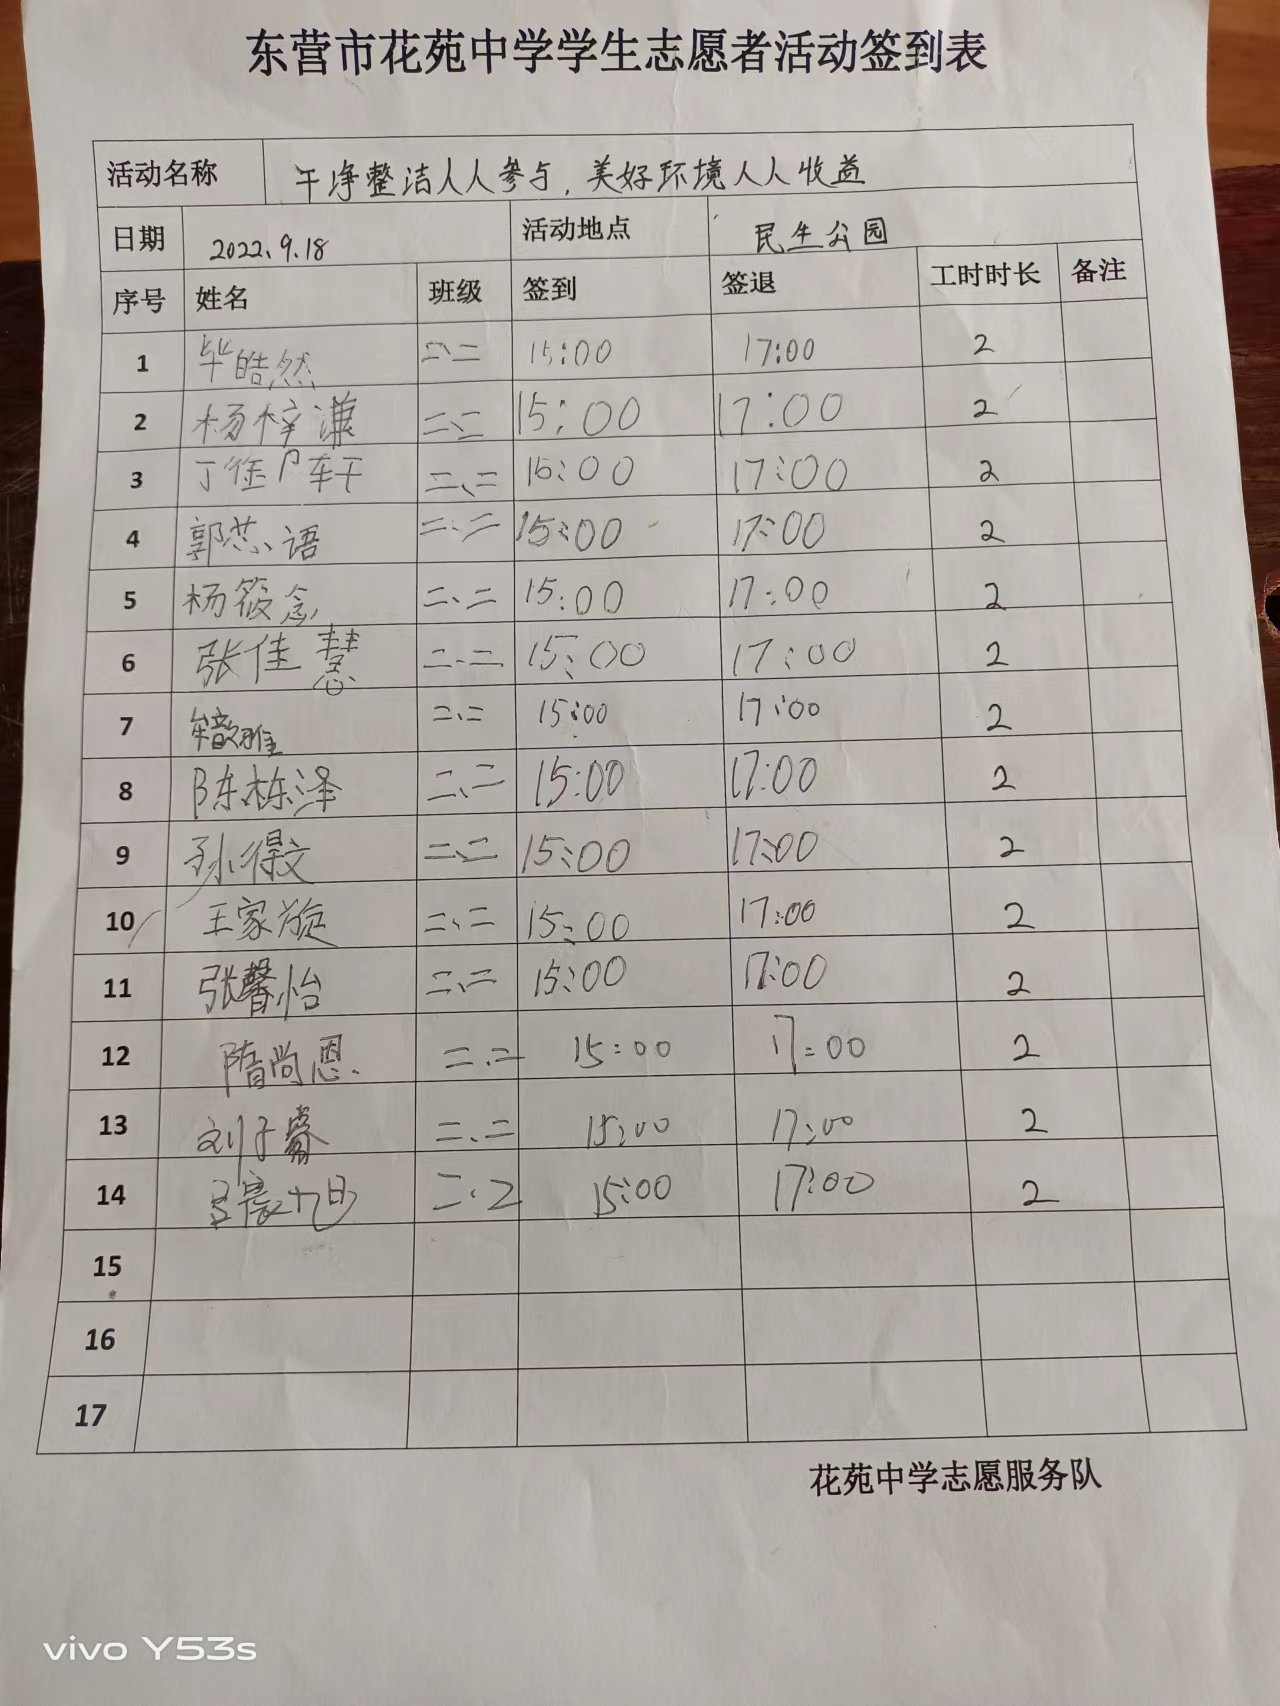 东营市花苑中学学生志愿者活动签到表
活动名称 干净整洁人人参与，美好环境人人收益
日期 2022.9.18 活动地点 民生公园
序号 姓名 班级 签到 签退 工时时长 备注
1 毕皓然 二、二 15:00 17:00 2
2 杨梓谦 二、二 15:00 17:00 2
3 二、二 15:00 17:00 2
4 郭芯语 二、二 15:00 17:00 2
5 杨筱念 二、二 15:00 17:00 2
6 张佳慧 二、二 15:00 17:00 2
7 二、二 15:00 17:00 2
8 陈栋泽 二、二 15:00 17:00 2
9 二、二 15:00 17:00 2
10 王家漩 二、二 15:00 17:00 2
11 张馨怡 二、二 15:00 17:00 2
12 隋尚恩 二、二 15:00 17:00 2
13 刘子睿 二、二 15:00 17:00 2
14 二、2 15:00 17:00 2
15
16
17
花苑中学志愿服务队
vivo Y53s